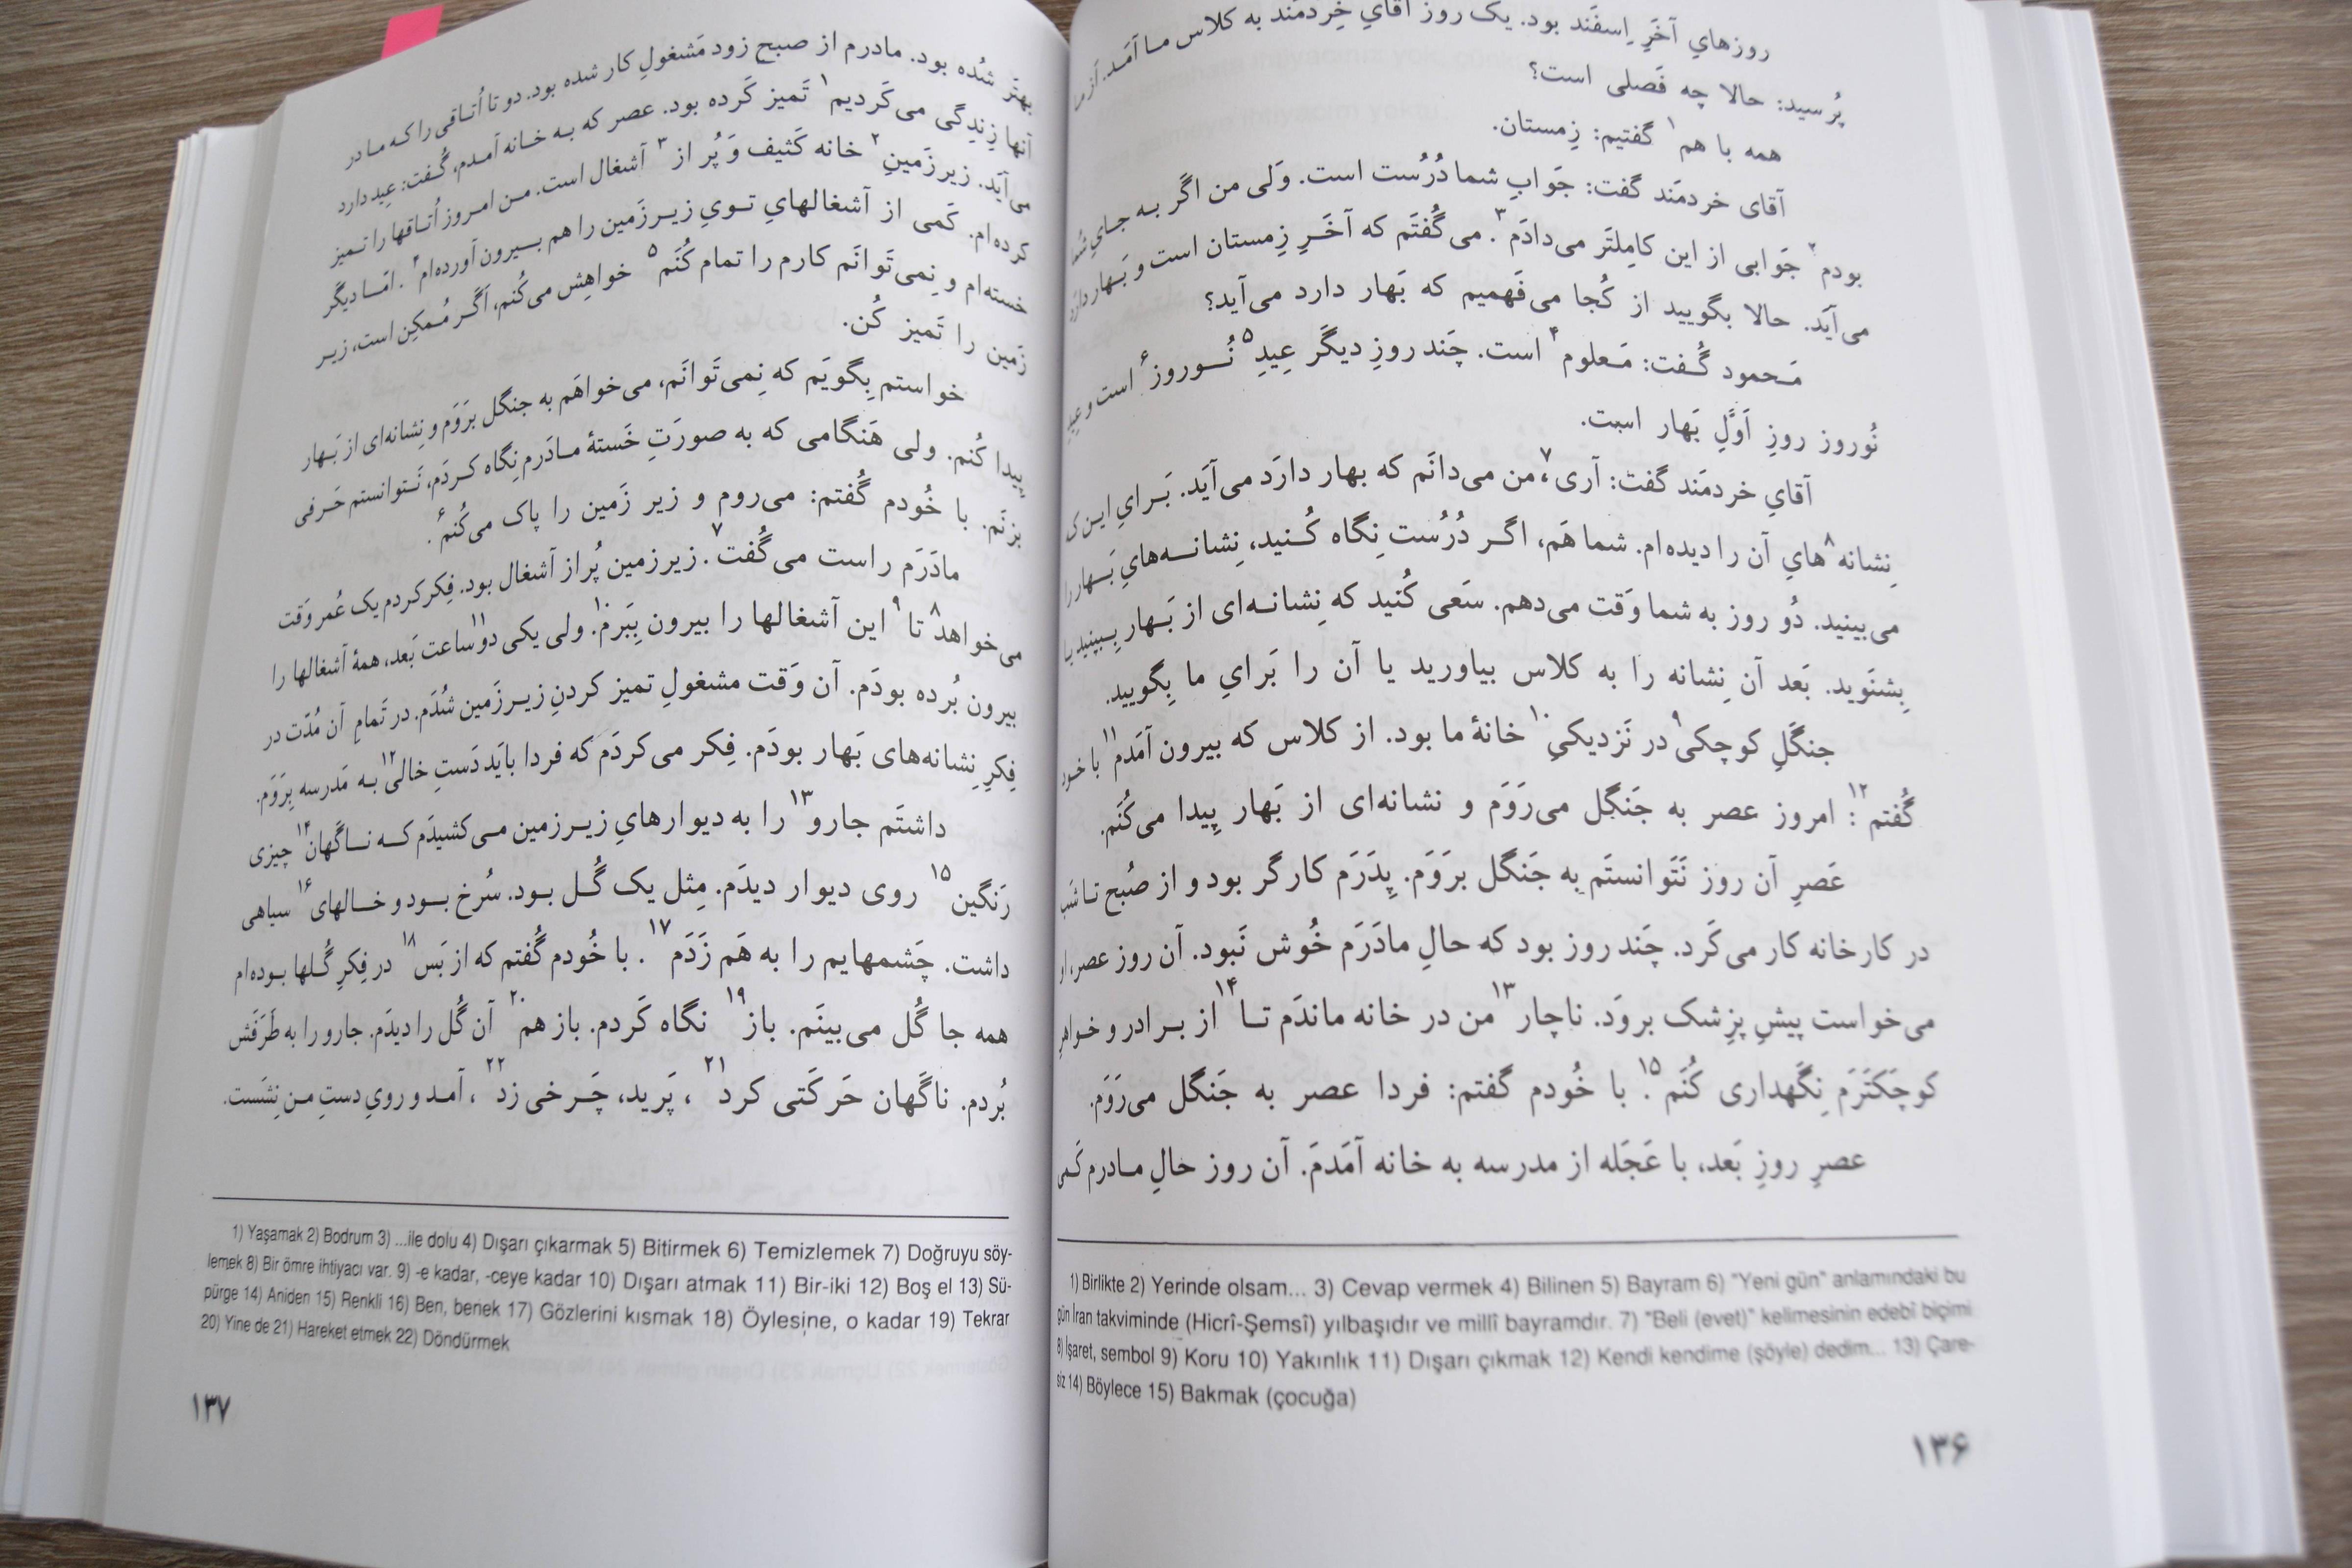 روزهايِ آخَرِ اِسفَند بود. یک روز آقايِ خِردمَند به کلاس مـا آمَـد. اَز ما
پُرسید: حالا چه فَصلی است؟
همه با هم۱ گفتیم: زِمستان.
آقای خردمَند گفت: جَوابِ شما دُرُست است. وَلی من اگَر بـه جـايِ شُما
بودم۲ جَوابی از این کامِلتَر می‌دادَم۳. می‌گُفتَم که آخَـرِ زِمستان است و بَـهار دارَد
می‌آیَد. حالا بگویید از کُجا می‌فَهمیم که بَهار دارد می‌آید؟
مَـحمود گُـفت: مَـعلوم۴ است. چَند روزِ دیگَر عِیدِ۵ نُـــوروز۶ است و عِیدِ
نُوروز روزِ اَوَّلِ بَهار است.
آقايِ خردمَند گفت: آری۷، من می‌دانَم که بهار دارَد می‌آیَد. بَـرايِ ایـن که
نِشانه۸هايِ آن را دیده‌ام. شما هَم، اگـر دُرُست نِگاه کُـنید، نِشانـــه‌هايِ بَـهار را
می‌بینید. دُو روز به شما وَقت می‌دهم. سَعی کُنید که نِشانـه‌ای از بَـهار بِـبینید یا
بِشنَوید. بَعد آن نِشانه را به کلاس بیاورید یا آن را بَرايِ ما بِگویید.
جنگَلِ کوچکی۹ در نَزدیکيِ۱۰ خانهٔ ما بود. از کلاس که بیرون آمَدم۱۱ با خود
گُفتم۱۲: امروز عصر به جَنگَل می‌رَوَم و نشانه‌ای از بَهار پِیدا می‌کُنَم.
عَصرِ آن روز نَتَوانستَم به جَنگل برَوَم. پِدَرَم کارگر بود و از صُبح تـا شَب
در کارخانه کار می‌کَرد. چَند روز بود که حالِ مادَرَم خُوش نَبود. آن روز عصر، او
می‌خواست پیشِ پِزِشک بروَد. ناچار۱۳ من در خانه ماندَم تــا۱۴ از بـرادر و خـواهرِ
کوچَکتَرَم نِگَهداری کُنَم۱۵. با خُودم گفتم: فردا عصر به جَنگل می‌رَوَم.
عصرِ روزِ بَعد، با عَجَله از مدرسه به خانه آمَدمَ. آن روز حالِ مـادرم کَمی
1) Birlikte 2) Yerinde olsam... 3) Cevap vermek 4) Bilinen 5) Bayram 6) "Yeni gün" anlamındaki bu
gün İran takviminde (Hicrî-Şemsî) yılbaşıdır ve millî bayramdır. 7) "Beli (evet)" kelimesinin edebî biçimi
8) İşaret, sembol 9) Koru 10) Yakınlık 11) Dışarı çıkmak 12) Kendi kendime (şöyle) dedim... 13) Çare-
siz 14) Böylece 15) Bakmak (çocuğa)
۱۳۶
بهتَر شُده بود. مادرم از صبحِ زود مَشغولِ کار شده بود. دو تا اُتـاقی را کـه مـا در
آنها زِندِگی می‌کَردیم۱ تَمیز کَرده بود. عصر که بـه خـانه آمـدم، گُـفت: عِید دارد
می‌آیَد. زیرزَمینِ۲ خانه کَثیف وَ پُر از۳ آشغال است. مـن امـروز اُتـاقها را تـمیز
کرده‌ام. کَمی از آشغالهايِ تـويِ زیـرزَمین را هم بـــیرون آورده‌ام۴. امّــا دیگَر
خسته‌ام و نِمی‌تَوانَم کارم را تمام کُنَم۵ خواهِش می‌کُنم، اَگـر مُـمکِن است، زیـر
زَمین را تَمیز کُن.
خواستم بِگویَم که نِمی‌تَوانَم، می‌خواهَم به جنگل برَوَم و نِشانه‌ای از بَـهار
پیدا کُنم. ولی هَنگامی که به صورَتِ خَستهٔ مـادَرم نِگاه کـردَم، نَـتوانستم حَـرفی
بزنَم. با خُودم گُفتم: می‌روم و زیر زَمین را پاک می‌کُنم۶.
مادَرَم راست می‌گُفت۷. زیرزمین پُر از آشغال بود. فِکر کردم یک عُمر وَقت
می‌خواهد۸ تا۹ این آشغالها را بیرون بِبَرم۱۰. ولی یکی دو۱۱ ساعت بَعد، همهٔ آشغالها را
بیرون بُرده بودَم. آن وَقت مشغولِ تمیز کردنِ زیـرزَمین شُدَم. در تَمامِ آن مُدّت در
فِکرِ نِشانه‌های بَهار بودَم. فِکر می‌کردَم که فردا بایَد دَستِ خالی۱۲ بـه مَدرسه بِرَوَم.
داشتَم جارو۱۳ را به دیوارهايِ زیـرزمین مـی‌کشیدَم کـــه نـــاگَهان۱۴ چیزی
رَنگین۱۵ روی دیوار دیدَم. مِثل یک گُـل بـود. سُرخ بـــود و خـــالهای۱۶ سیاهی
داشت. چَشمهایم را به هَم زَدَم۱۷. با خُودم گُفتم که از بَس۱۸ در فِکرِ گُـلها بـوده‌ام
همه جا گُل می‌بینَم. باز۱۹ نگاه کَردم. باز هم۲۰ آن گُل را دیدَم. جارو را به طَرَفَش
بُردم. ناگَهان حَرکَتی کرد۲۱، پَرید، چَـرخی زد۲۲، آمـد و رويِ دستِ مـن نِشَست.
1) Yaşamak 2) Bodrum 3) ...ile dolu 4) Dışarı çıkarmak 5) Bitirmek 6) Temizlemek 7) Doğruyu söy-
lemek 8) Bir ömre ihtiyacı var. 9) -e kadar, -ceye kadar 10) Dışarı atmak 11) Bir-iki 12) Boş el 13) Sü-
pürge 14) Aniden 15) Renkli 16) Ben, benek 17) Gözlerini kısmak 18) Öylesine, o kadar 19) Tekrar
20) Yine de 21) Hareket etmek 22) Döndürmek
۱۳۷